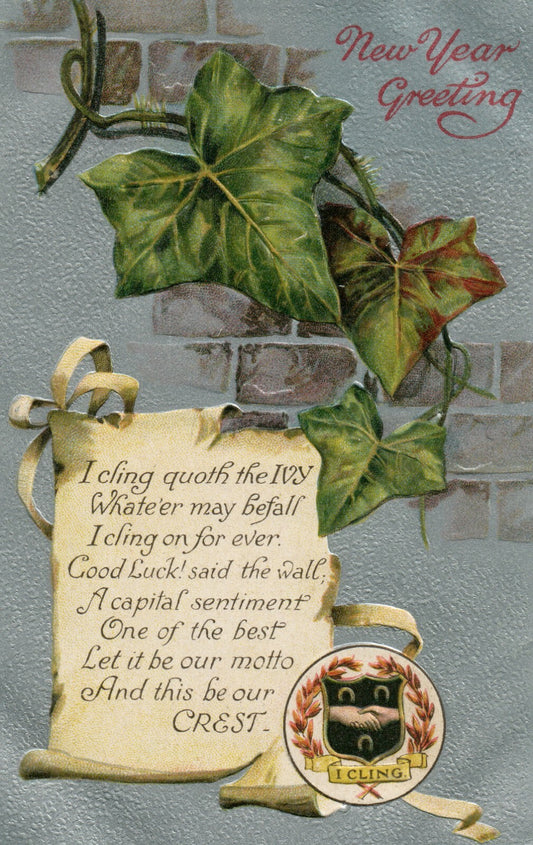 New Year
Greeting
I cling quoth the IVY
Whate'er may befall
I cling on for ever.
Good Luck! said the wall;
A capital sentiment
One of the best
Let it be our motto
And this be our
CREST-
I CLING.